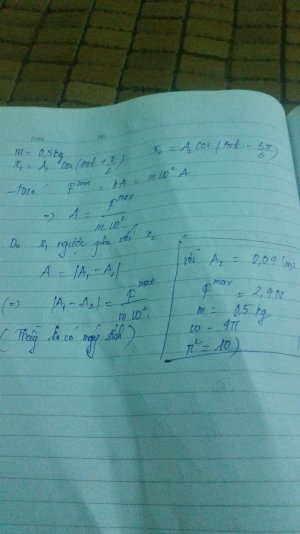 m = 0,5 kg
x₁ = A₁ cos(4πt + π/
x₂ = A₂ cos(4πt - 5π/6)
F^max = kA = m.ω² A
=> A = F^max / m.ω²
Do x₁ ngược pha với x₂
A = |A₁ - A₂|
(=) |A₁ - A₂| = F^max / m.ω²
(Thầy có
với A₂ = 0,09 (m)
F^max = 2,4N
m = 0,5 kg
ω = 4π
π² = 10)